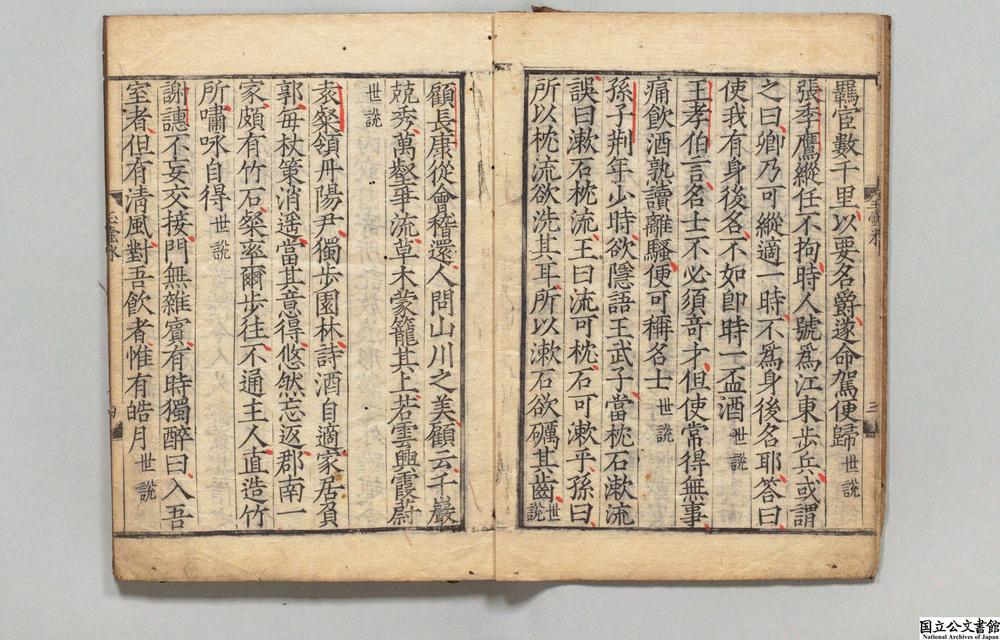 羈宦數千里以要名爵遂命駕便歸 世說
張季鷹縱任不拘時人號爲江東步兵或謂
之曰卿乃可縱適一時不爲身後名耶答曰
使我有身後名不如卽時一盃酒 世說
王孝伯言名士不必須奇才但使常得無事
痛飲酒熟讀離騷便可稱名士 世說
孫子荆年少時欲隱語王武子當枕石漱流
誤曰漱石枕流王曰流可枕石可漱乎孫曰
所以枕流欲洗其耳所以漱石欲礪其齒 世說
顧長康從會稽還人問山川之美顧云千巖
競秀萬壑爭流草木蒙籠其上若雲興霞蔚
世說
袁粲領丹陽尹獨步園林詩酒自適家居負
郭每杖策消遥當其意得悠然忘返郡南一
家頗有竹石粲率爾步往不通主人直造竹
所嘯咏自得 世說
謝譓不妄交接門無雜賓有時獨醉曰入吾
室者但有淸風對吾飮者惟有皓月 世說
国立公文書館
National Archives of Japan